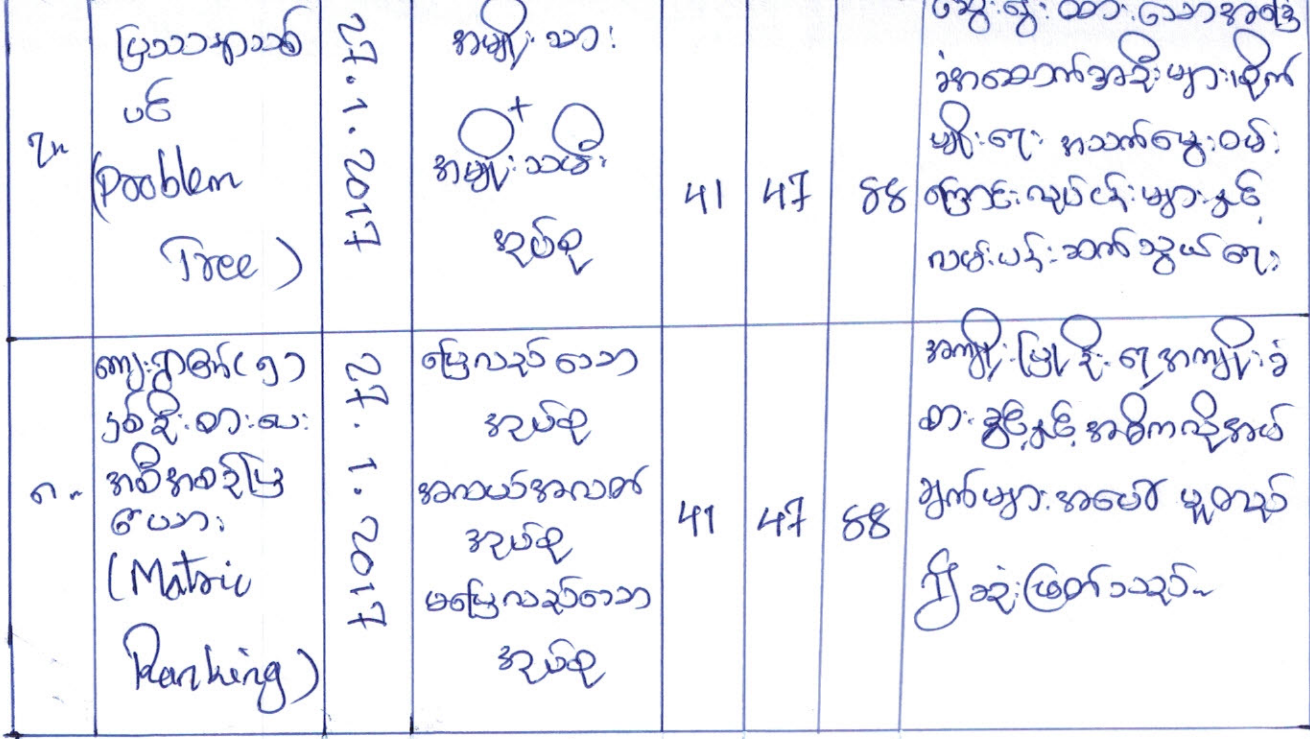 ၇။
ပြဿနာသစ်
ပင်
(Problem
Tree)
27.1.2017
အမျိုးသား
+
အမျိုးသမီး
အုပ်စု
41
47
88
ဆွေးနွေးထားသော
ခံအဆောက်အဦးများ၊စိုက်
မျိုးရေး အသက်မွေးဝမ်း
ကြောင်းလုပ်ငန်းများနှင့်
လမ်းပန်းဆက်သွယ်ရေး
၈။
ကျေးရွာ၏(၅)
နှစ်ဦးစားပေး
အစီအစဉ်ပြ
ဇယား
(Matric
Ranking)
27.1.2017
ပြေလည်သော
အုပ်စု
အလယ်အလတ်
အုပ်စု
မပြေလည်သော
အုပ်စု
41
47
88
အကျိုးပြုနိုင်ရေ အကျိုးခံ
စားခွင့်နှင့် အဓိကလိုအပ်
ချက်များအပေါ် မူတည်
၍ ဆုံးဖြတ်သည်။